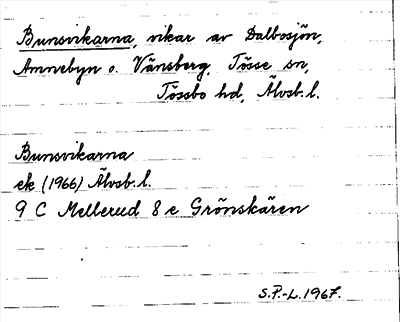 Bunsvikarna, vikar av Dalbosjön,
Amnebyn o. Vänsberg, Tösse sn,
Tössbo hd, Älvsb. l.
Bunsvikarna
ek (1966) Älvsb. l.
9 C Mellerud 8 e Grönskären
S.P.-L. 1967.